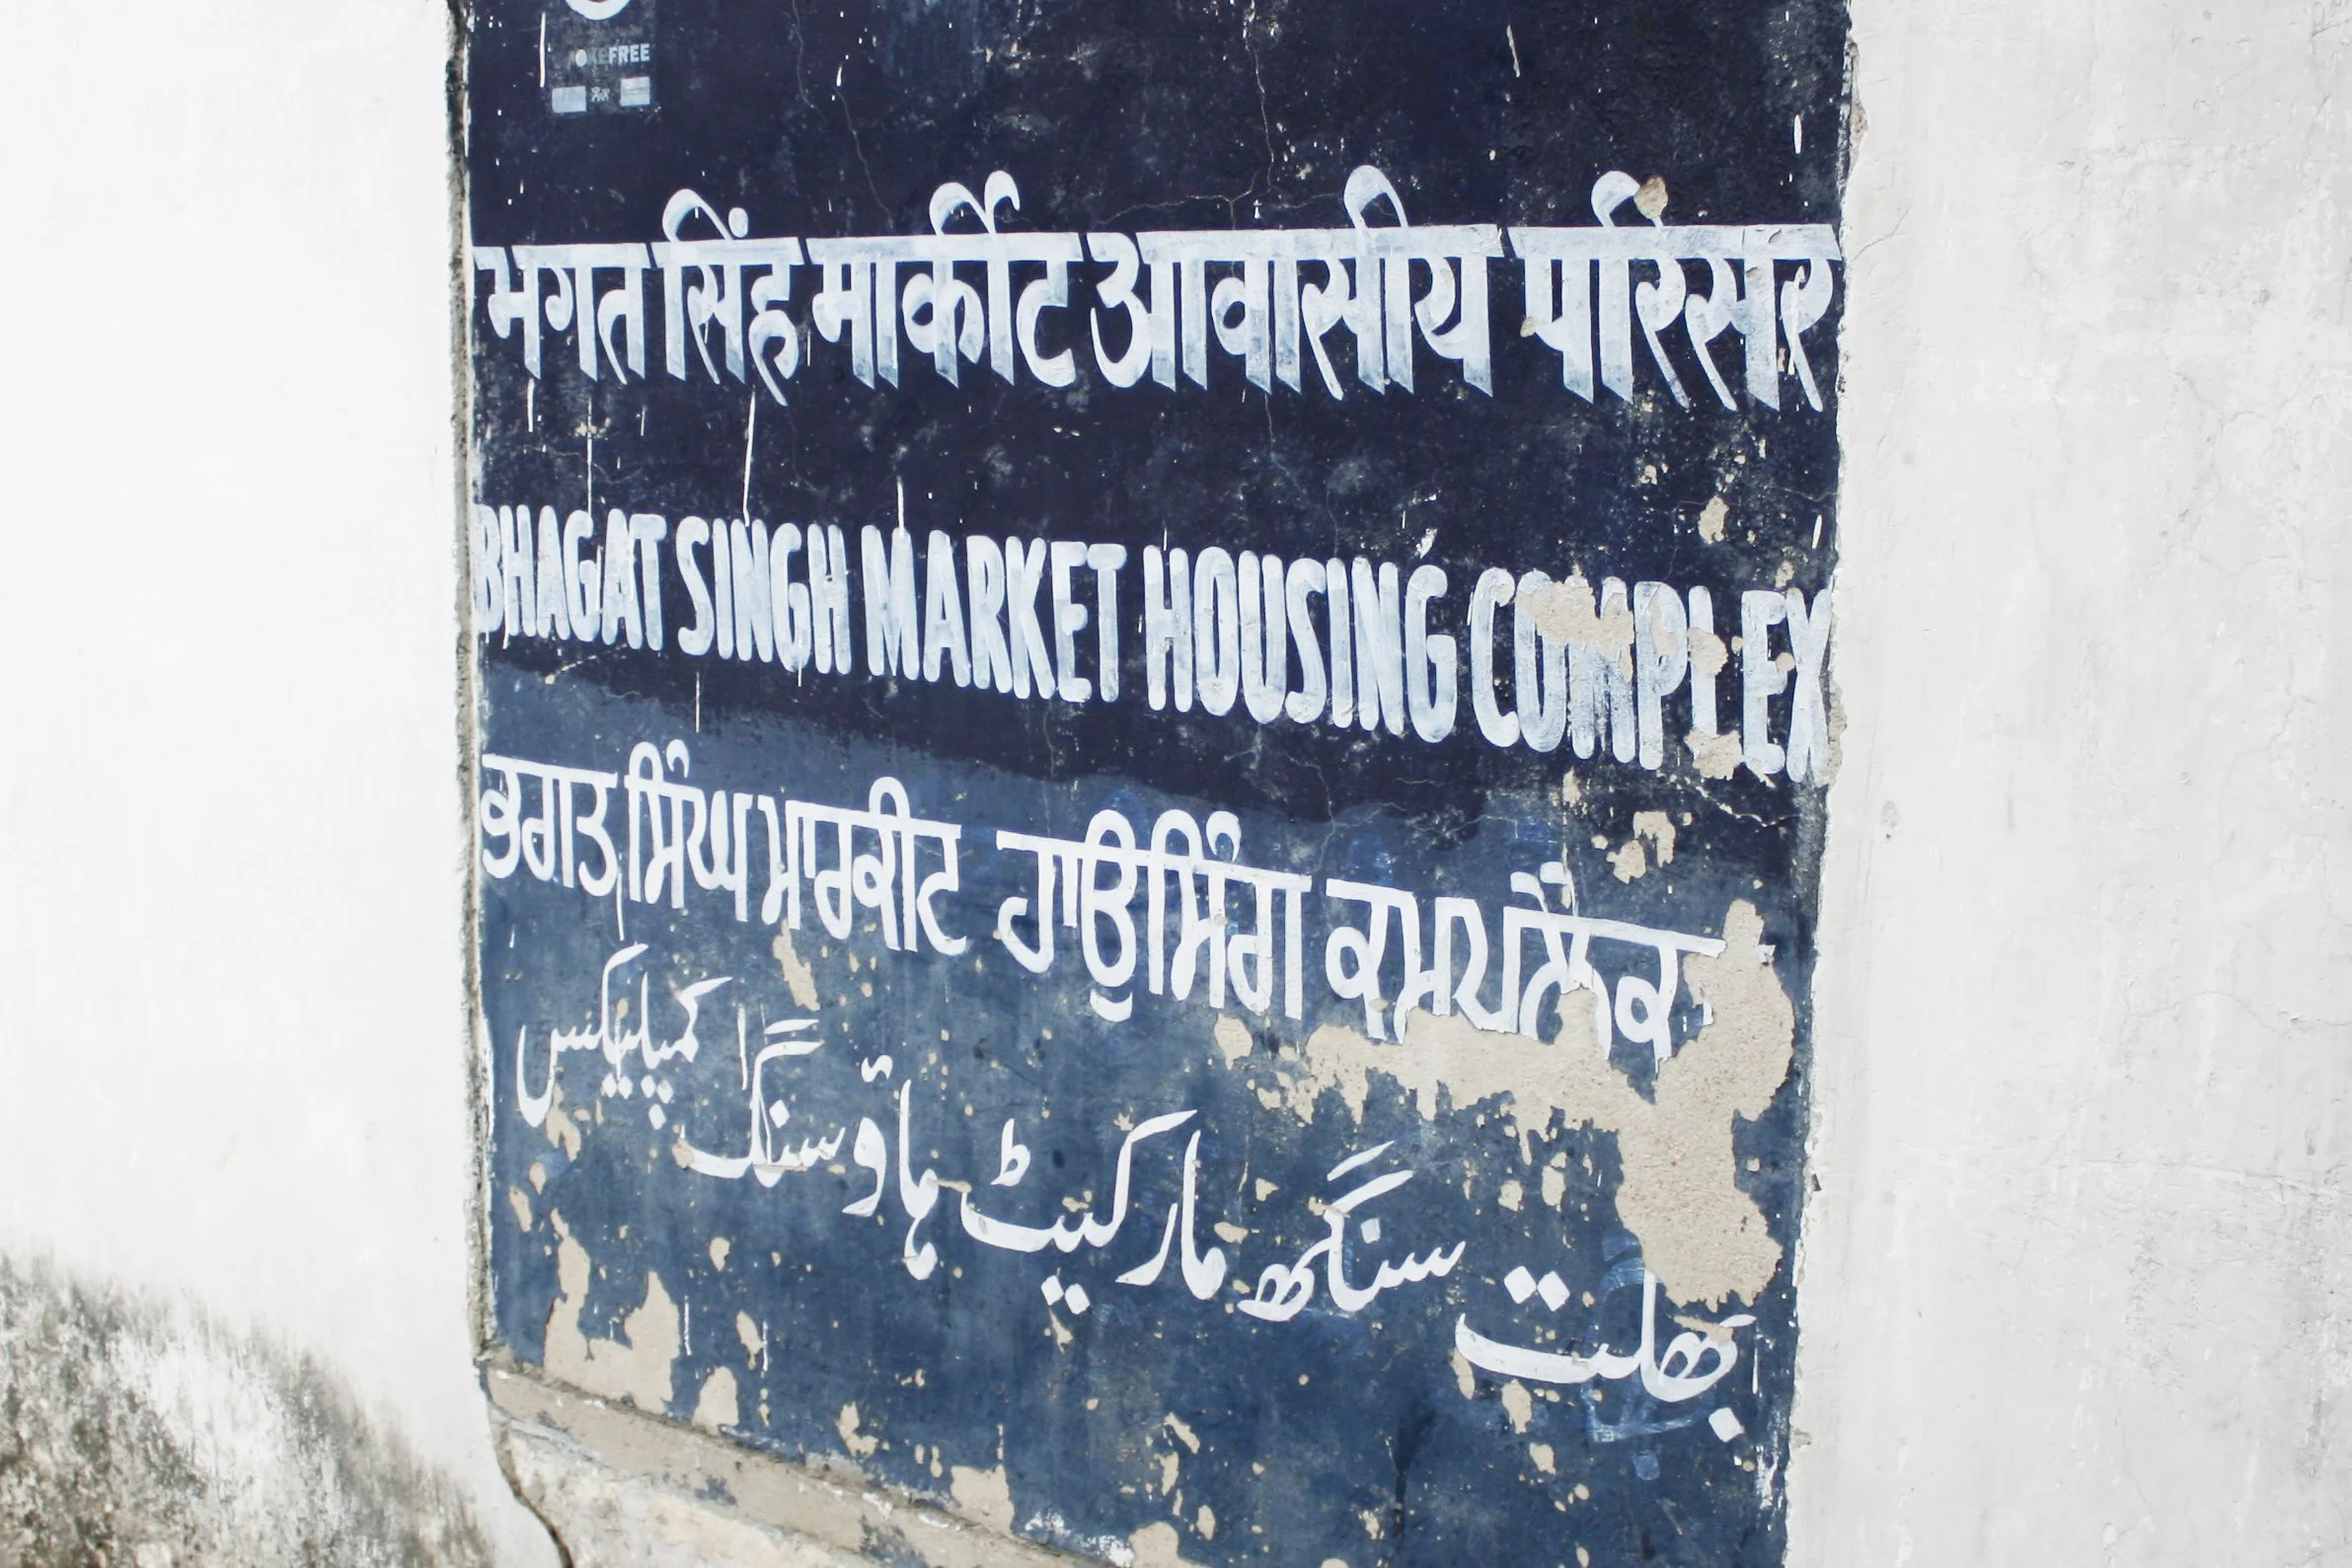 भगत सिंह मार्कीट आवासीय परिसर
BHAGAT SINGH MARKET HOUSING COMPLEX
ਭਗਤ ਸਿੰਘ ਮਾਰਕੀਟ ਹਾਊਸਿੰਗ ਕਮਪਲੈਕ
بھلت سنگھ مارکیٹ ہاؤسنگ کمپلیکس